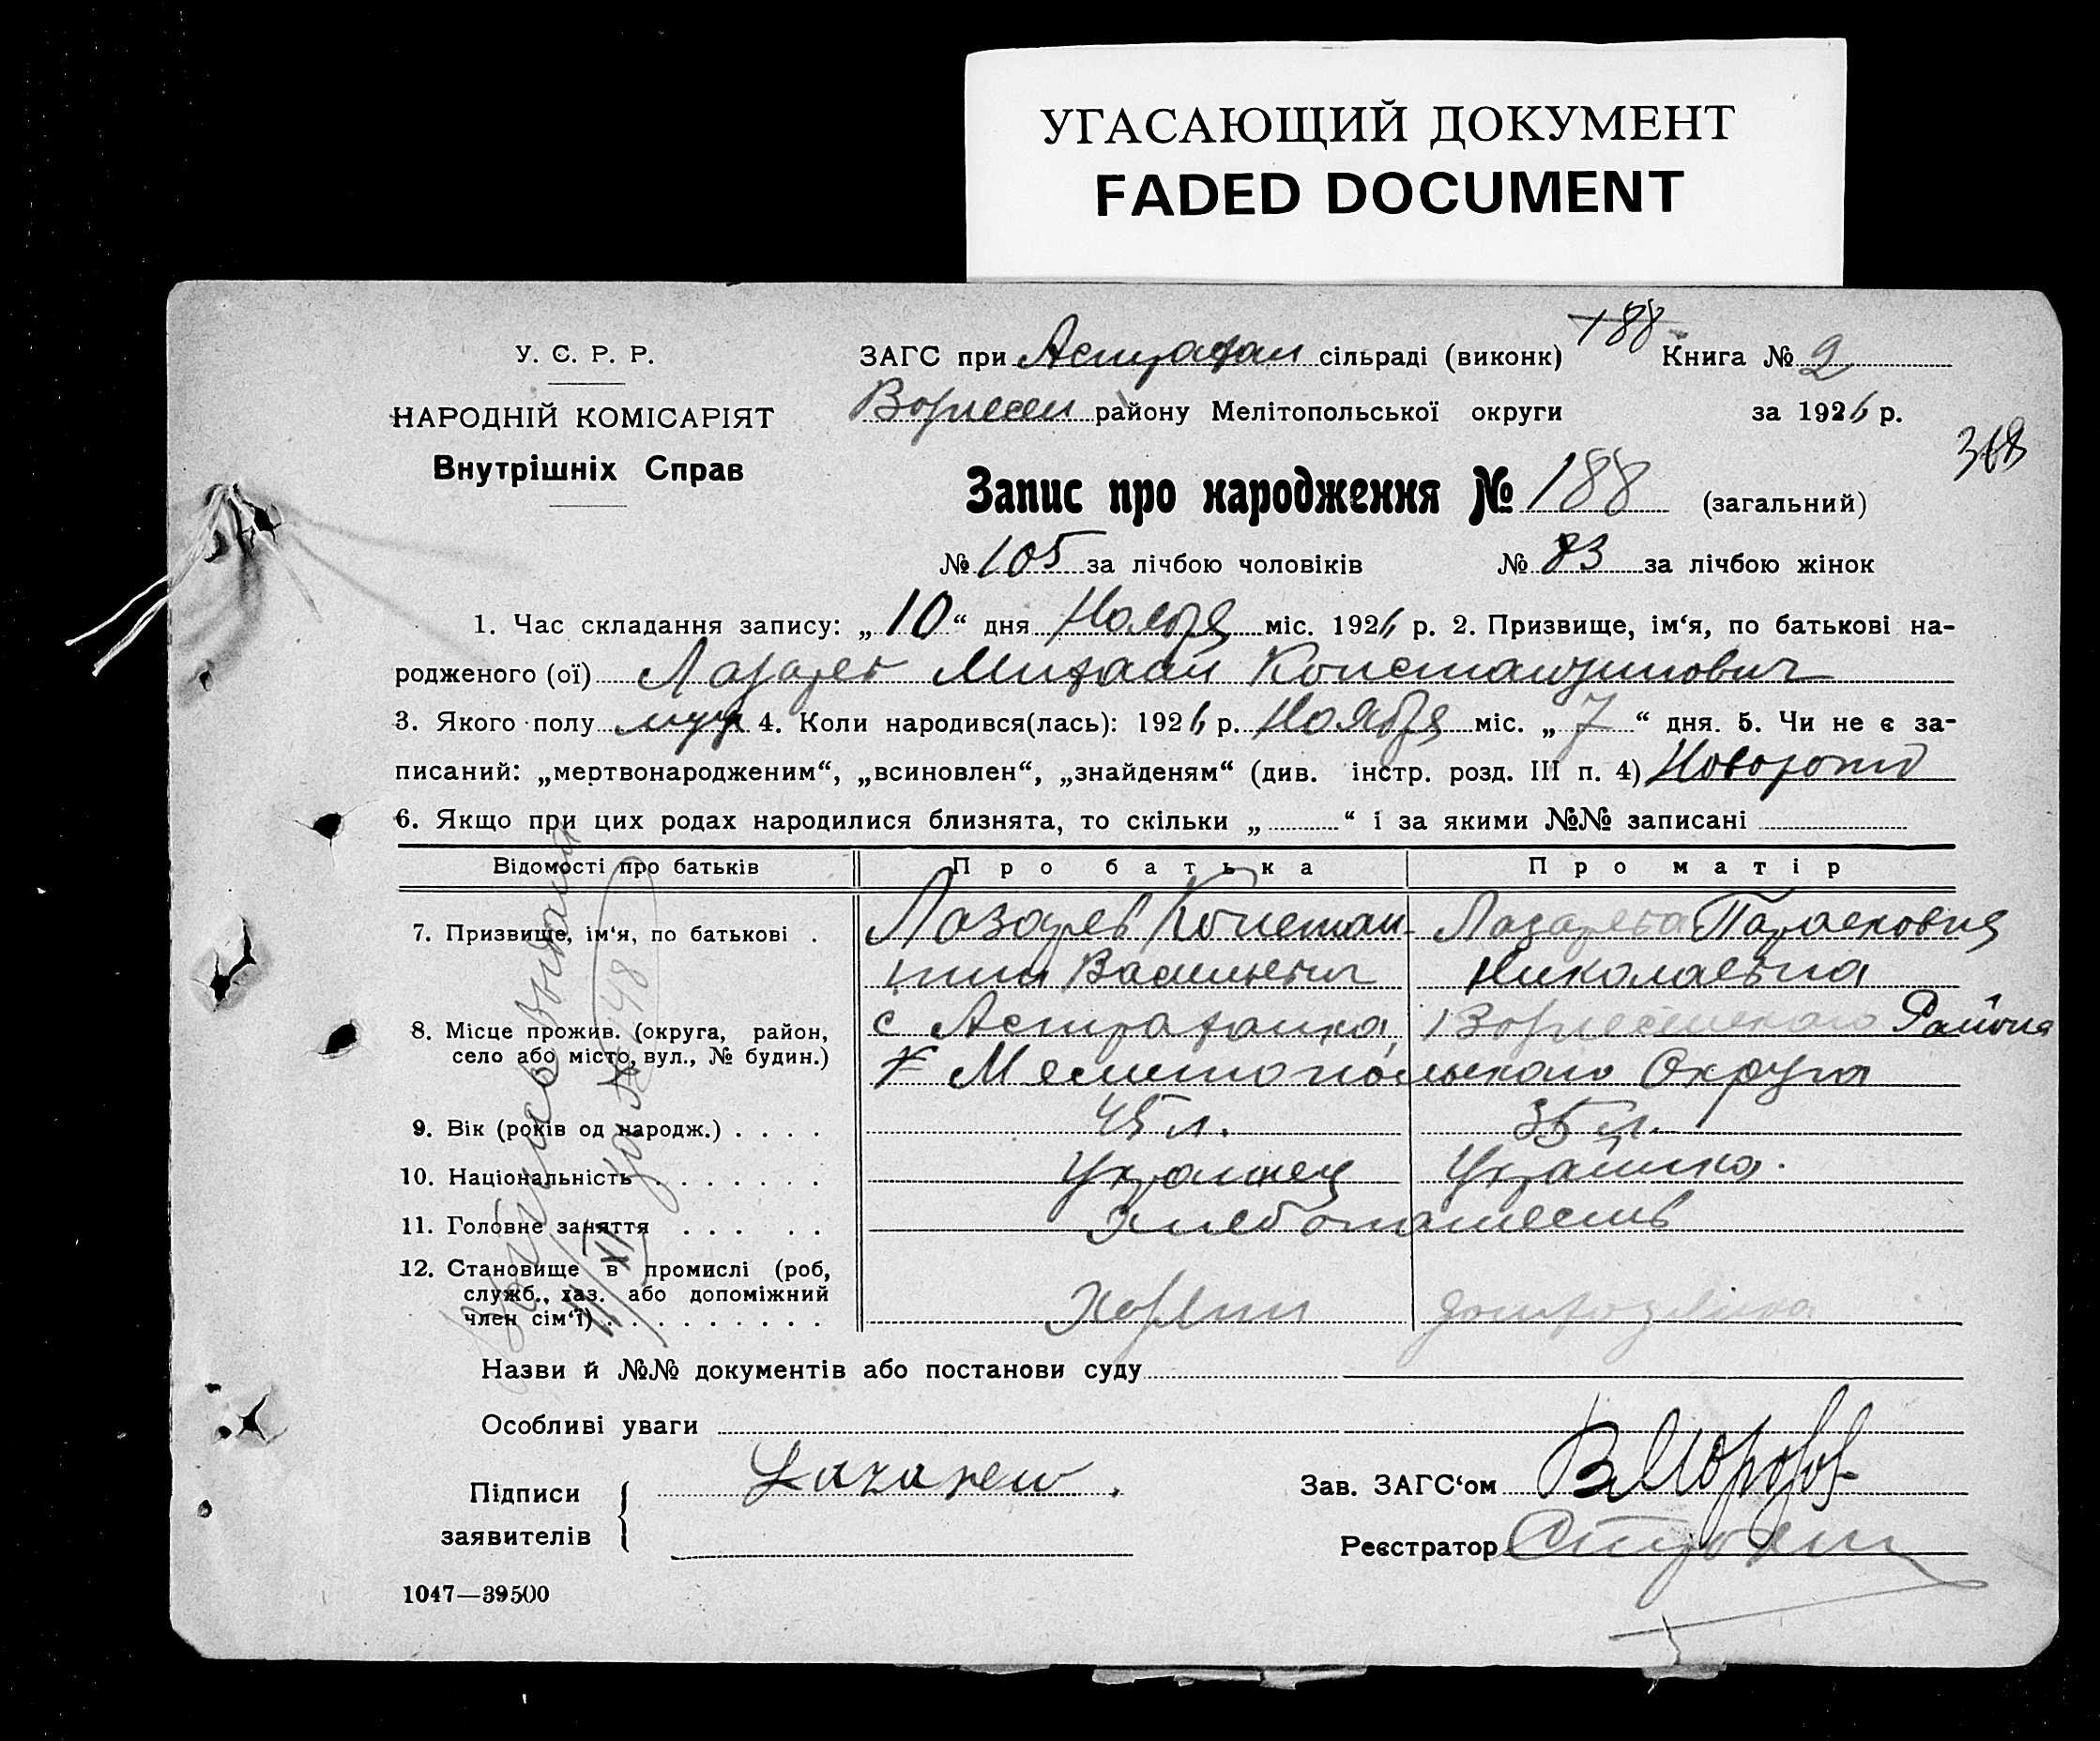 УГАСАЮЩИЙ ДОКУМЕНТ
FADED DOCUMENT
188
У. С. Р. Р.
ЗАГС при Астрахан сільраді (виконк) Книга № 2
НАРОДНІЙ КОМІСАРІЯТ
району Мелітопольської округи за 1926 р.
Внутрішніх Справ
Запис про народження № 188 (загальний)
№ 105 за лічбою чоловіків № 83 за лічбою жінок
1. Час складання запису: „10“ дня Ноября міс. 1926 р. 2. Призвище, ім‘я, по батькові на-
родженого (ої) Лазарев Михаил Константинович
3. Якого полу муж 4. Коли народився(лась): 1926 р. Ноября міс. „7“ дня. 5. Чи не є за-
писаний: „мертвонародженим“, „всиновлен“, „знайденям“ (див. інстр. розд. III п. 4)
6. Якщо при цих родах народилися близнята, то скільки „ “ і за якими №№ записані
Відомості про батьків Про батька Про матір
7. Призвище, ім‘я, по батькові . Лазарев Констан- Лазарева Парасковия
тин Васильевич Николаевна
8. Місце прожив. (округа, район, с Астраханка, Района
село або місто, вул., № будин.) Мелитопольского Округа
9. Вік (років од народж.) . . . . 45 л. 35 л.
10. Національність . . . . . . . Украинец Украинка.
11. Головне заняття . . . . . Хлебопашество
12. Становище в промислі (роб,
служб., хаз. або допоміжний
член сім‘ї) . . . . . . . . . .
Назви й №№ документів або постанови суду
Особливі уваги
Підписи
заявителів
Зав. ЗАГС‘ом В Морозов
Реєстратор
1047—39500